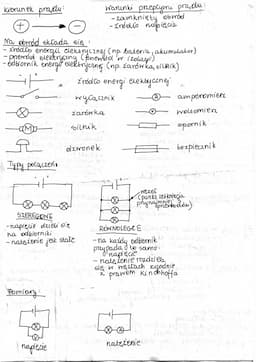 kierunek prądu:
warunki przepływu prądu:
- zamknięty obwód
- źródło napięcia
Na obwód składa się:
- źródło energii elektrycznej (np. bateria, akumulator)
- przewód elektryczny
- odbiornik energii elektrycznej (np. żarówka, silnik)
źródło energii elektrycznej
wyłącznik
amperomierz
żarówka
woltomierz
silnik
opornik
dzwonek
bezpiecznik
Typy połączeń:
węzeł
SZEREGOWE
- napięcie dzieli się
na odbiorniki
- natężenie jest stałe
RÓWNOLEGŁE
- na każdy odbiornik
przypada to samo
napięcie
- natężenie rozdziela
się w węzłach zgodnie
z prawem Kirchhoffa
Pomiary:
napięcie
natężenie